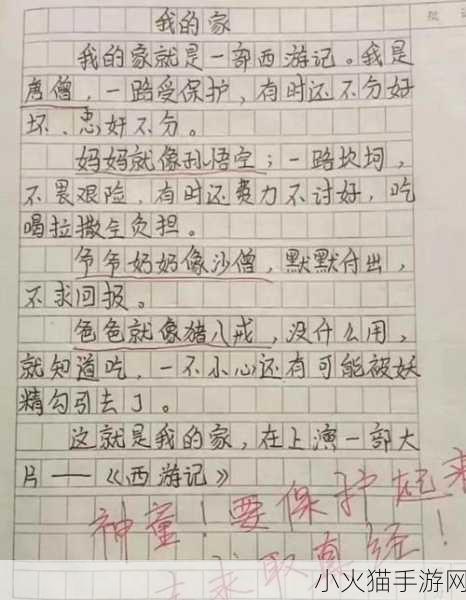 我的家
我的家就是一部西游记。我是
唐僧，一路受保护，有时还不分好
坏、忠奸不分。
妈妈就像孙悟空；一路坎坷，
不畏艰险，有时还费力不讨好，吃
喝拉撒全负担。
爷爷奶奶像沙僧，默默付出，
不求回报。
爸爸就像猪八戒，没什么用，
就知道吃，一不小心还有可能被妖
精勾引去了。
这就是我的家，在上演一部大
片——《西游记》
神童！要保护起来
去求取真经！
小火猫手游网